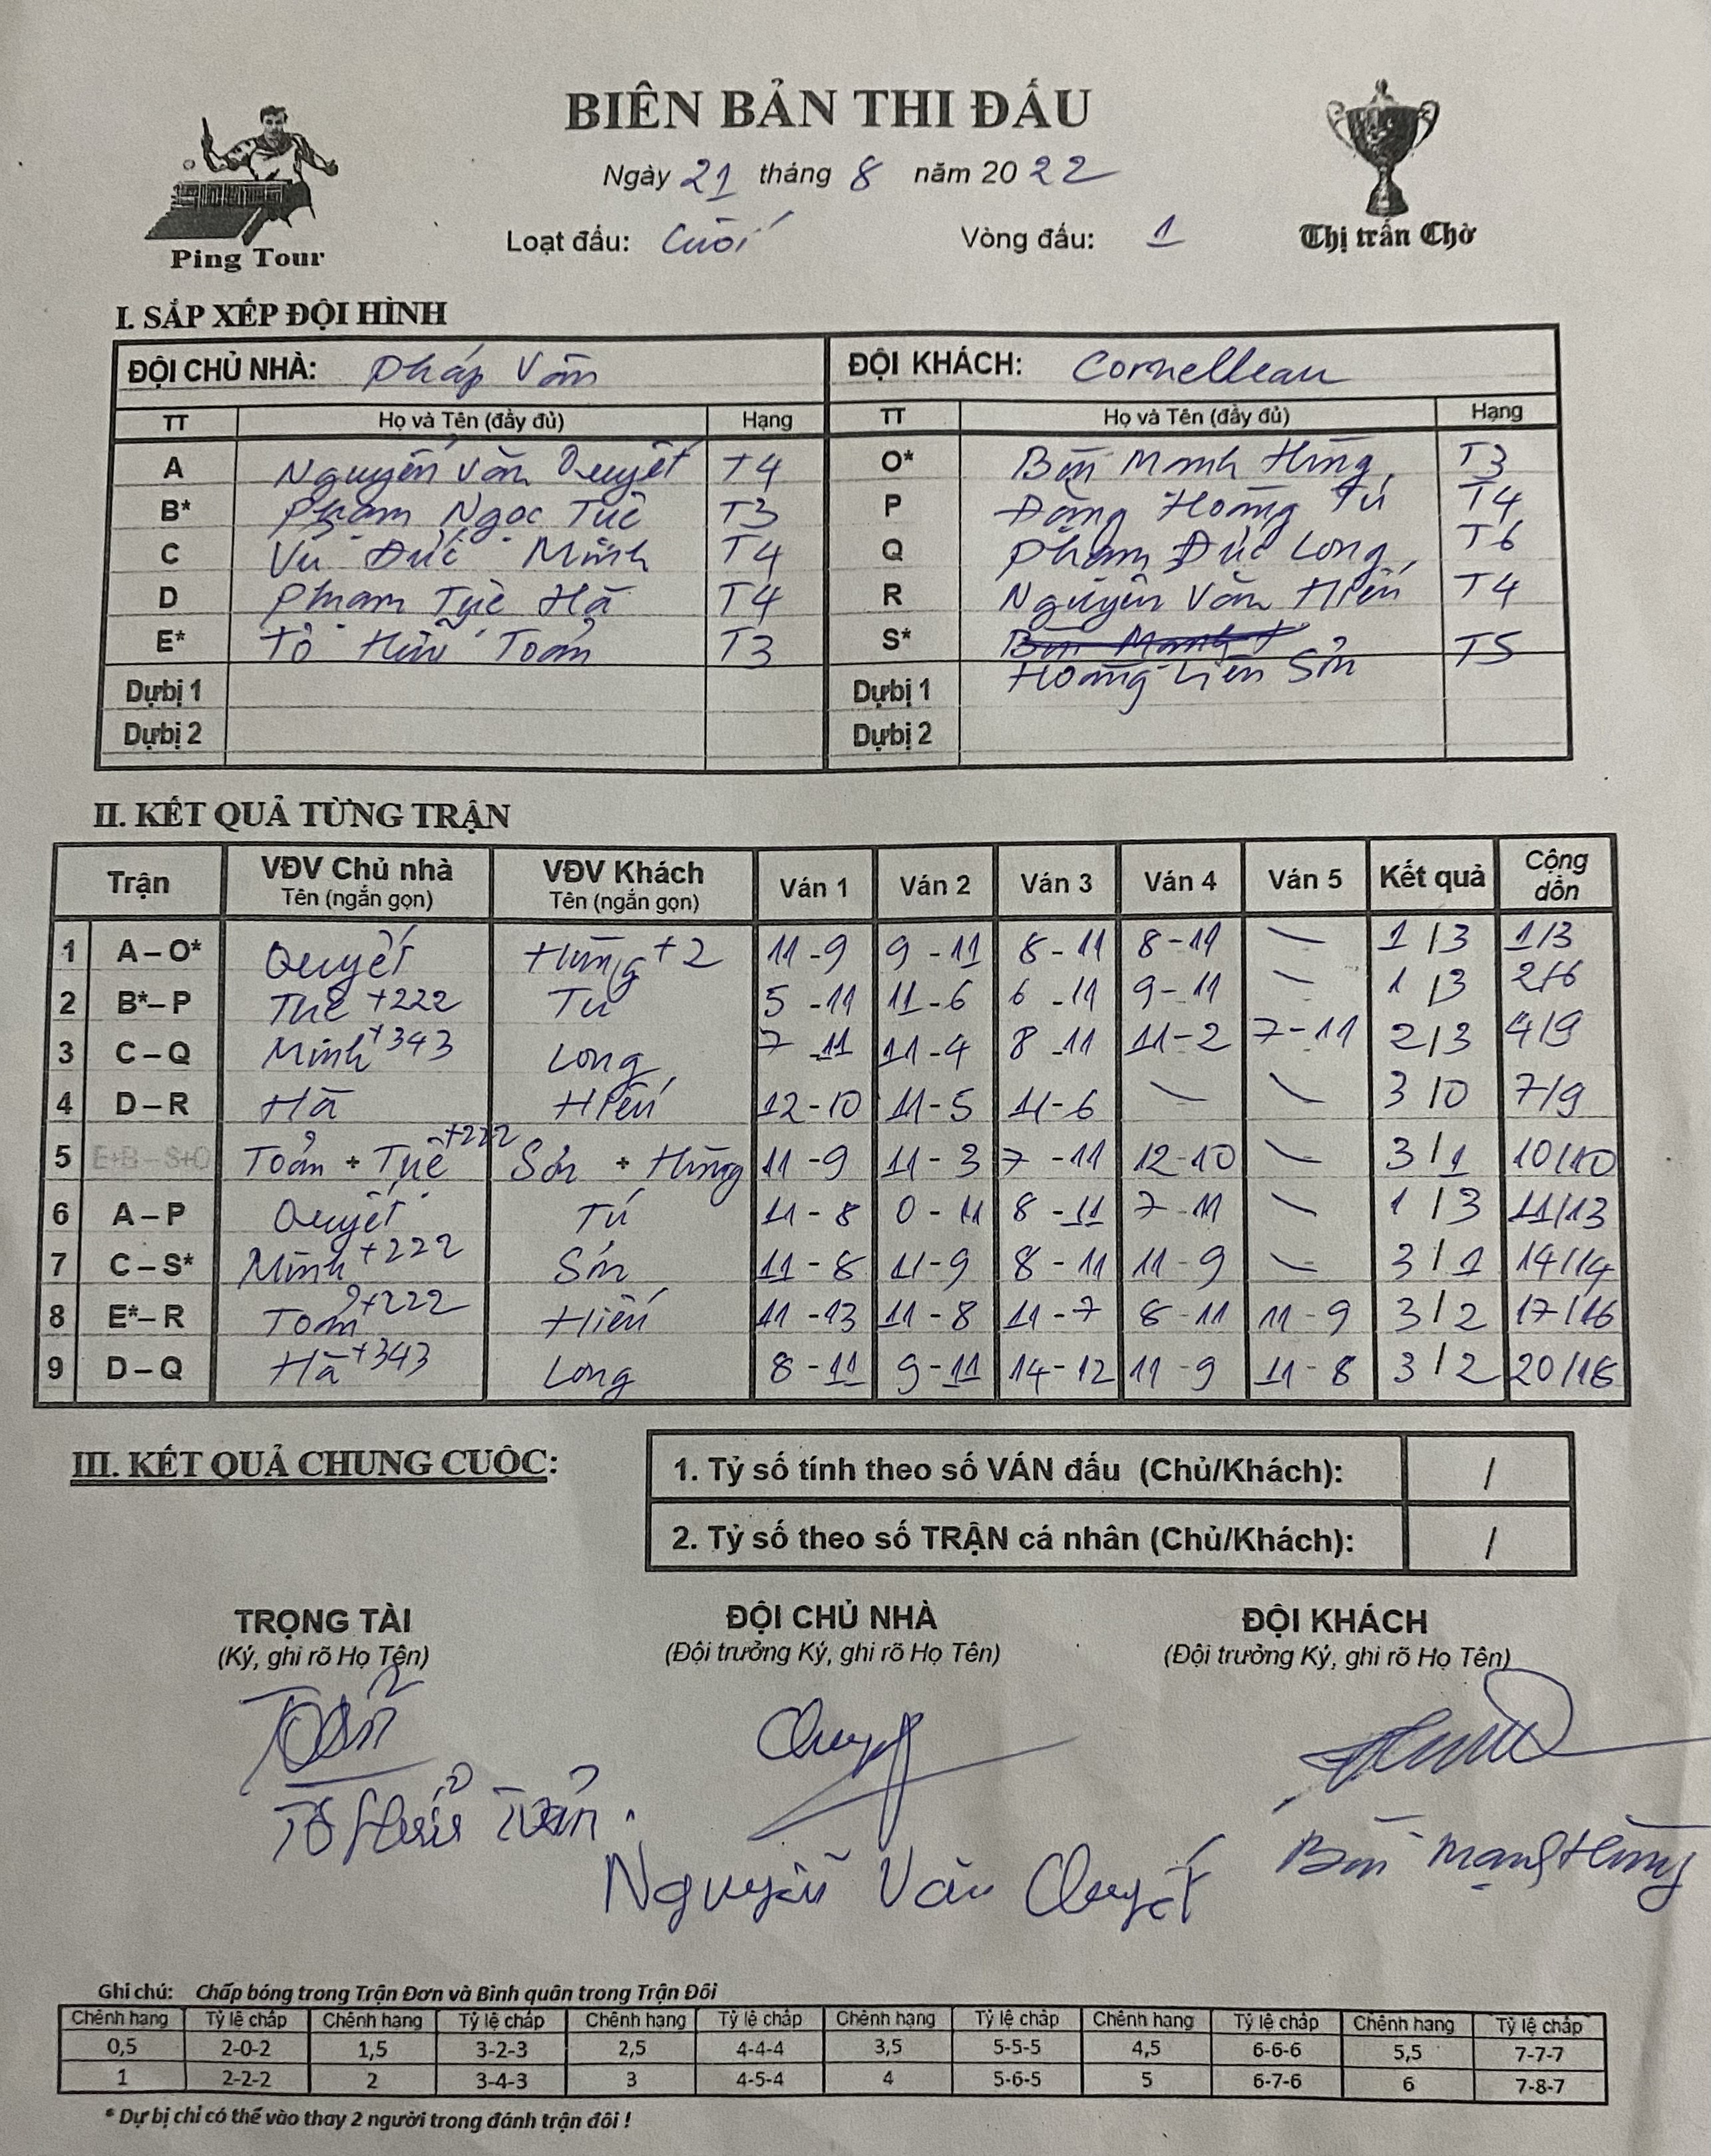 BIÊN BẢN THI ĐẤU
Ngày 21 tháng 8 năm 2022
Loạt đấu: Cuối Vòng đấu: 1
Ping Tour
Thị trấn Chờ
I. SẮP XẾP ĐỘI HÌNH
ĐỘI CHỦ NHÀ: Pháp Vân ĐỘI KHÁCH: Cornelleau
TT Họ và Tên (đầy đủ) Hạng TT Họ và Tên (đầy đủ) Hạng
A Nguyễn Văn Quyết T4 O* Bùi Mạnh Hùng T3
B* Phạm Ngọc Tuê T3 P Đặng Hoàng Tú T4
C Vũ Đức Minh T4 Q Phạm Đức Long T6
D Phạm Tuê Hà T4 R Nguyễn Văn Hiến T4
E* Tô Hữu Toản T3 S* Bùi Mạnh T5
Hoàng Liên Sơn
Dự bị 1 Dự bị 1
Dự bị 2 Dự bị 2
II. KẾT QUẢ TỪNG TRẬN
Trận VĐV Chủ nhà Tên (ngắn gọn) VĐV Khách Tên (ngắn gọn) Ván 1 Ván 2 Ván 3 Ván 4 Ván 5 Kết quả Cộng dồn
1 A – O* Quyết Hùng +2 11-9 9-11 8-11 8-11 – 1/3 1/3
2 B* – P +222 Tú 5-11 11-6 6-11 9-11 – 1/3 2/6
3 C – Q Minh +343 Long 7-11 11-4 8-11 11-2 7-11 2/3 4/9
4 D – R Hà Hiến 12-10 11-5 11-6 – – 3/0 7/9
5 E+B – S+O Toản + Tuê +222 Sơn + Hùng 11-9 11-3 7-11 12-10 – 3/1 10/10
6 A – P Quyết Tú 11-8 0-11 8-11 7-11 – 1/3 11/13
7 C – S* Minh +222 Sơn 11-8 11-9 8-11 11-9 – 3/1 14/14
8 E* – R Toản +222 Hiến 11-13 11-8 11-7 8-11 11-9 3/2 17/16
9 D – Q Hà +343 Long 8-11 9-11 14-12 11-9 11-8 3/2 20/18
III. KẾT QUẢ CHUNG CUỘC:
1. Tỷ số tính theo số VÁN đấu (Chủ/Khách): /
2. Tỷ số theo số TRẬN cá nhân (Chủ/Khách): /
TRỌNG TÀI ĐỘI CHỦ NHÀ ĐỘI KHÁCH
(Ký, ghi rõ Họ Tên) (Đội trưởng Ký, ghi rõ Họ Tên) (Đội trưởng Ký, ghi rõ Họ Tên)
Toản Quyết
Tô Hữu Toản. Nguyễn Văn Quyết Bùi Mạnh Hùng
Ghi chú: Chấp bóng trong Trận Đơn và Bình quân trong Trận Đôi
Chênh hạng Tỷ lệ chấp Chênh hạng Tỷ lệ chấp Chênh hạng Tỷ lệ chấp Chênh hạng Tỷ lệ chấp Chênh hạng Tỷ lệ chấp Chênh hạng Tỷ lệ chấp
0,5 2-0-2 1,5 3-2-3 2,5 4-4-4 3,5 5-5-5 4,5 6-6-6 5,5 7-7-7
1 2-2-2 2 3-4-3 3 4-5-4 4 5-6-5 5 6-7-6 6 7-8-7
* Dự bị chỉ có thể vào thay 2 người trong đánh trận đôi !